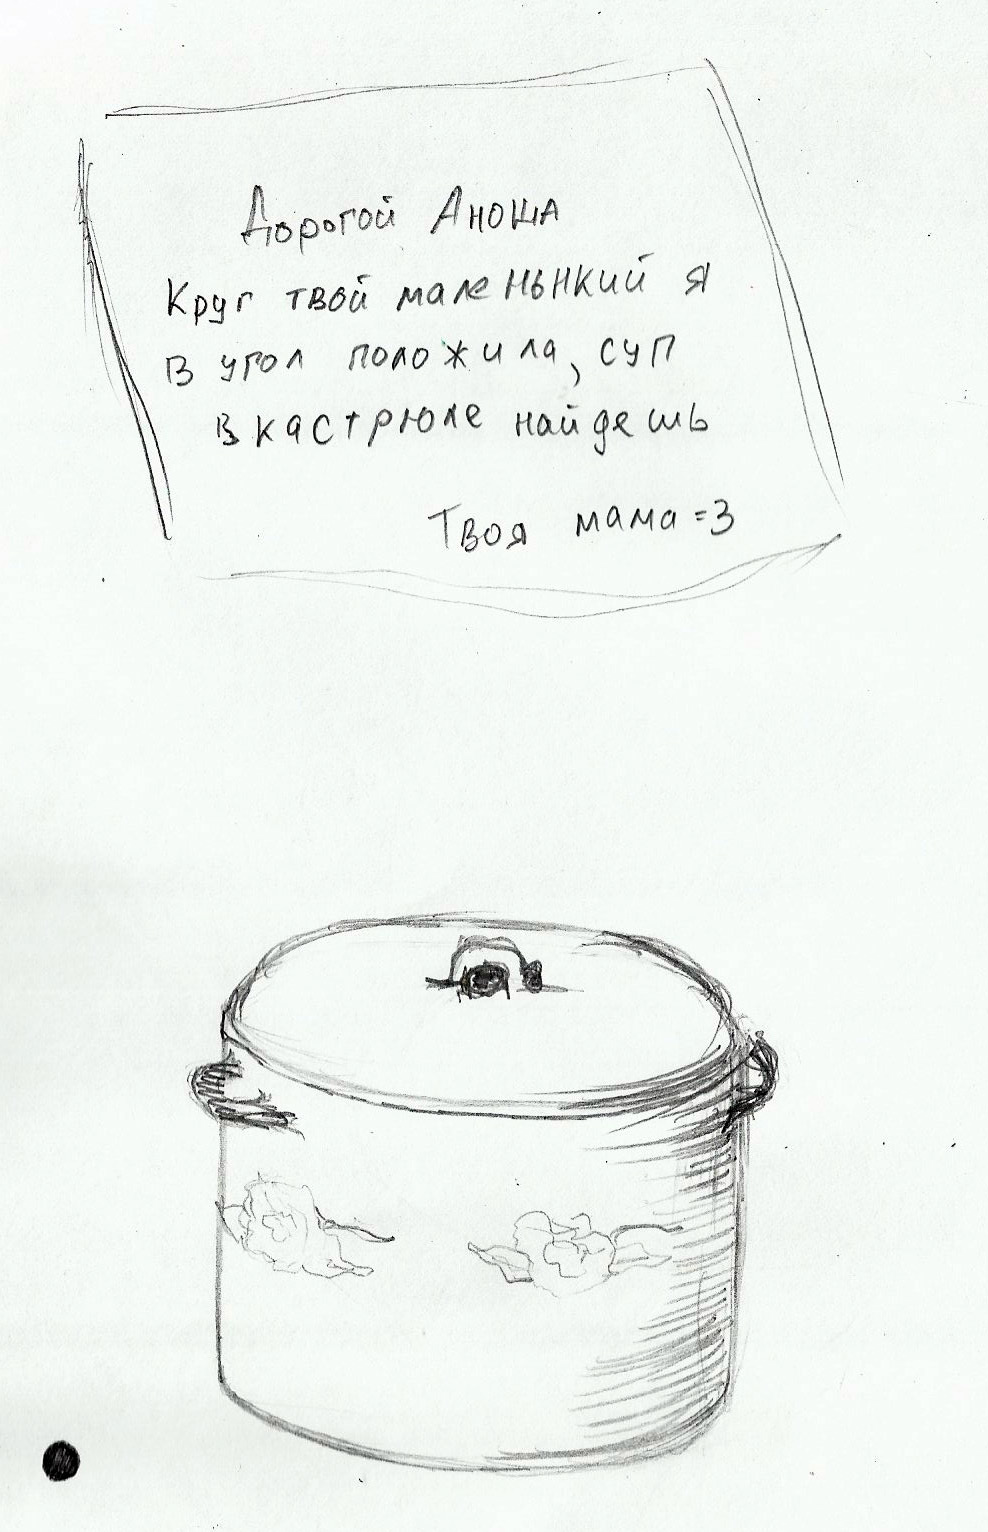 Дорогой Аноша
Круг твой маленьнкий я
в угол положила, суп
в кастрюле найдешь
Твоя мама =3